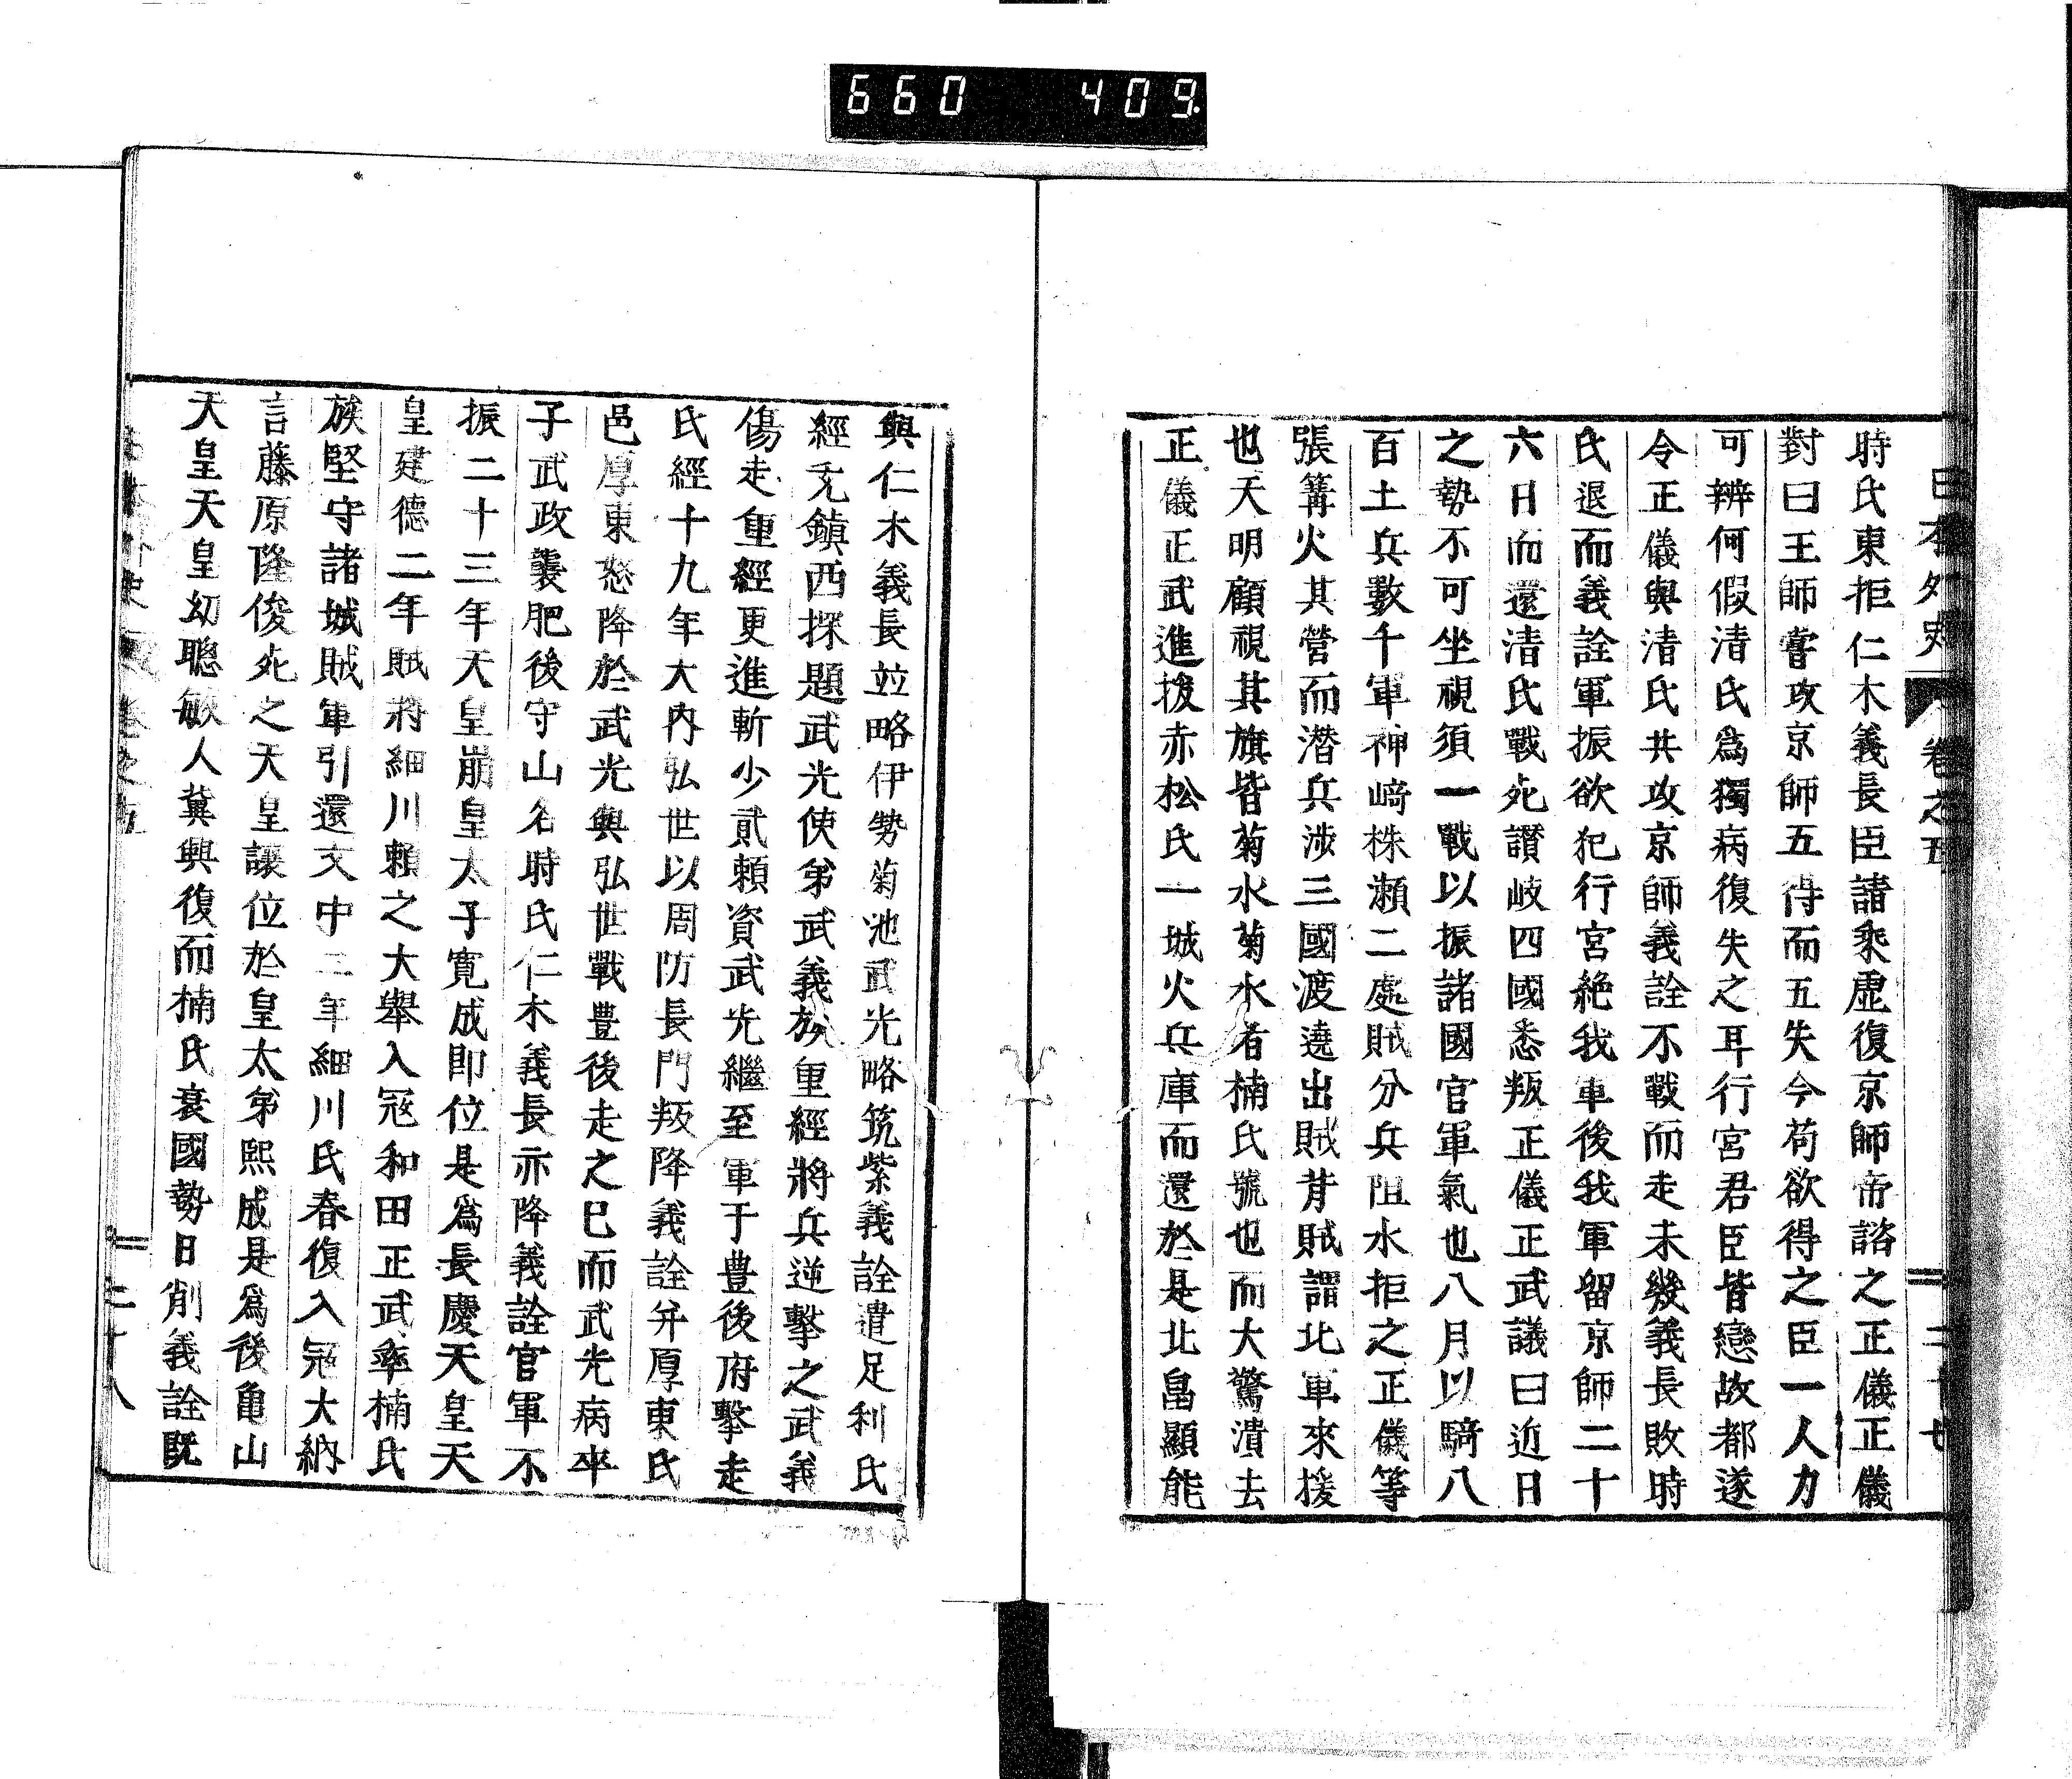 660 409.
日本外史 卷之五 二十七
時氏東拒仁木義長臣請乘虛復京師帝諮之正儀正儀
對曰王師嘗攻京師五得而五失今苟欲得之臣一人力
可辨何假清氏爲獨病復失之耳行宮君臣皆戀故都遂
令正儀與清氏共攻京師義詮不戰而走未幾義長敗時
氏退而義詮軍振欲犯行宮絶我軍後我軍留京師二十
六日而還清氏戰死讃岐四國悉叛正儀正武議曰近日
之勢不可坐視須一戰以振諸國官軍氣也八月以騎八
百土兵數千軍神崎株瀬二處賊分兵阻水拒之正儀等
張篝火其營而潛兵渉三國渡遶出賊背賊謂北軍來援
也天明顧視其旗皆菊水菊水者楠氏號也而大驚潰去
正儀正武進援赤松氏一城火兵庫而還於是北畠顯能
與仁木義長竝略伊勢菊池武光略筑紫義詮遣足利氏
經充鎮西探題武光使弟武義族重經將兵逆擊之武義
傷走重經更進斬少貳賴資武光繼至軍于豊後府擊走
氏經十九年大内弘世以周防長門叛降義詮并厚東氏
邑厚東怒降於武光與弘世戰豊後走之已而武光病卒
子武政襲肥後守山名時氏仁木義長亦降義詮官軍不
振二十三年天皇崩皇太子寛成即位是爲長慶天皇天
皇建德二年賊將細川賴之大舉入冦和田正武率楠氏
族堅守諸城賊軍引還文中二年細川氏春復入冦大納
言藤原隆俊死之天皇讓位於皇太弟熙成是爲後亀山
天皇天皇幼聰敏人冀興復而楠氏衰國勢日削義詮既
二十八